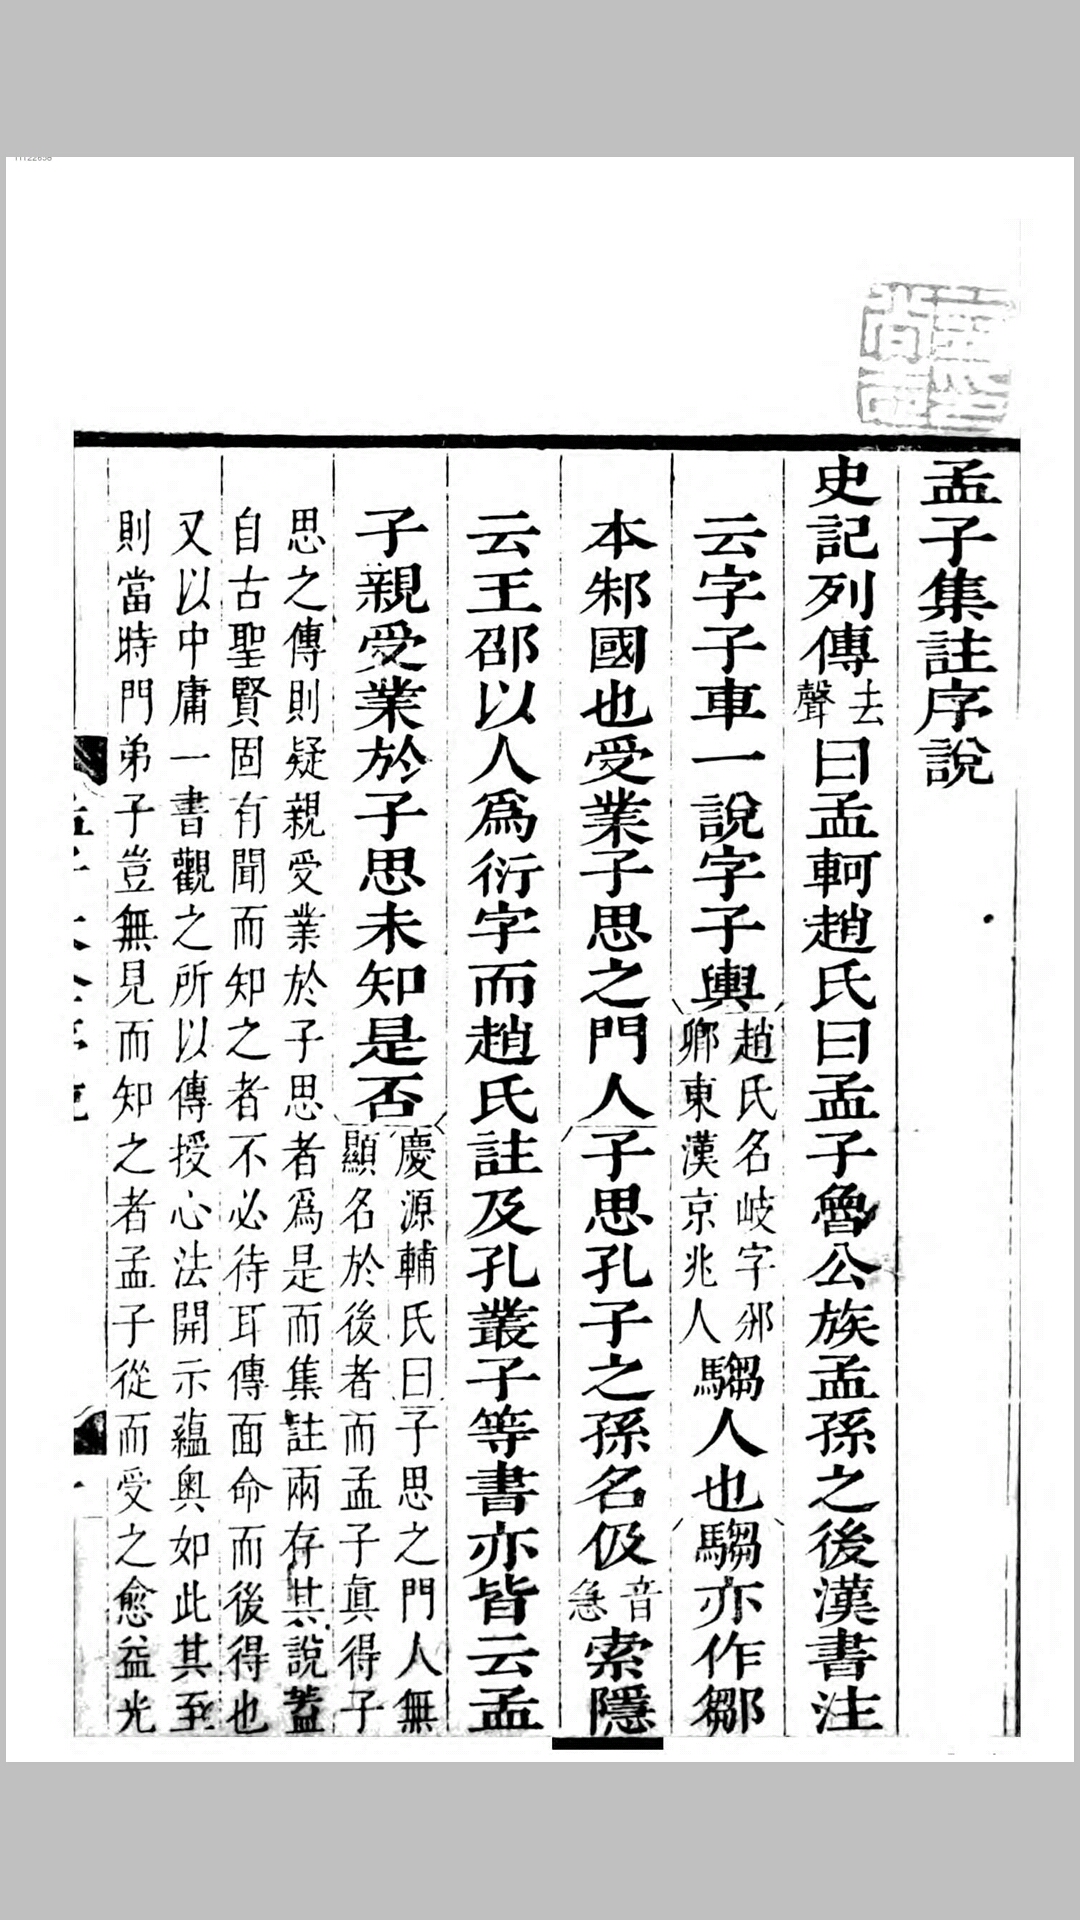 孟子集註序說
史記列傳去聲曰孟軻趙氏曰孟子魯公族孟孫之後漢書注
云字子車一說字子輿趙氏名岐字邠卿東漢京兆人騶人也騶亦作鄒
本邾國也受業子思之門人子思孔子之孫名伋音急索隱
云王邵以人為衍字而趙氏註及孔叢子等書亦皆云孟
子親受業於子思未知是否慶源輔氏曰子思之門人無
顯名於後者而孟子眞得子
思之傳則疑親受業於子思者為是而集註兩存其說蓋
自古聖賢固有聞而知之者不必待耳傳面命而後得也
又以中庸一書觀之所以傳授心法開示蘊奧如此其至
則當時門弟子豈無見而知之者孟子從而受之愈益光